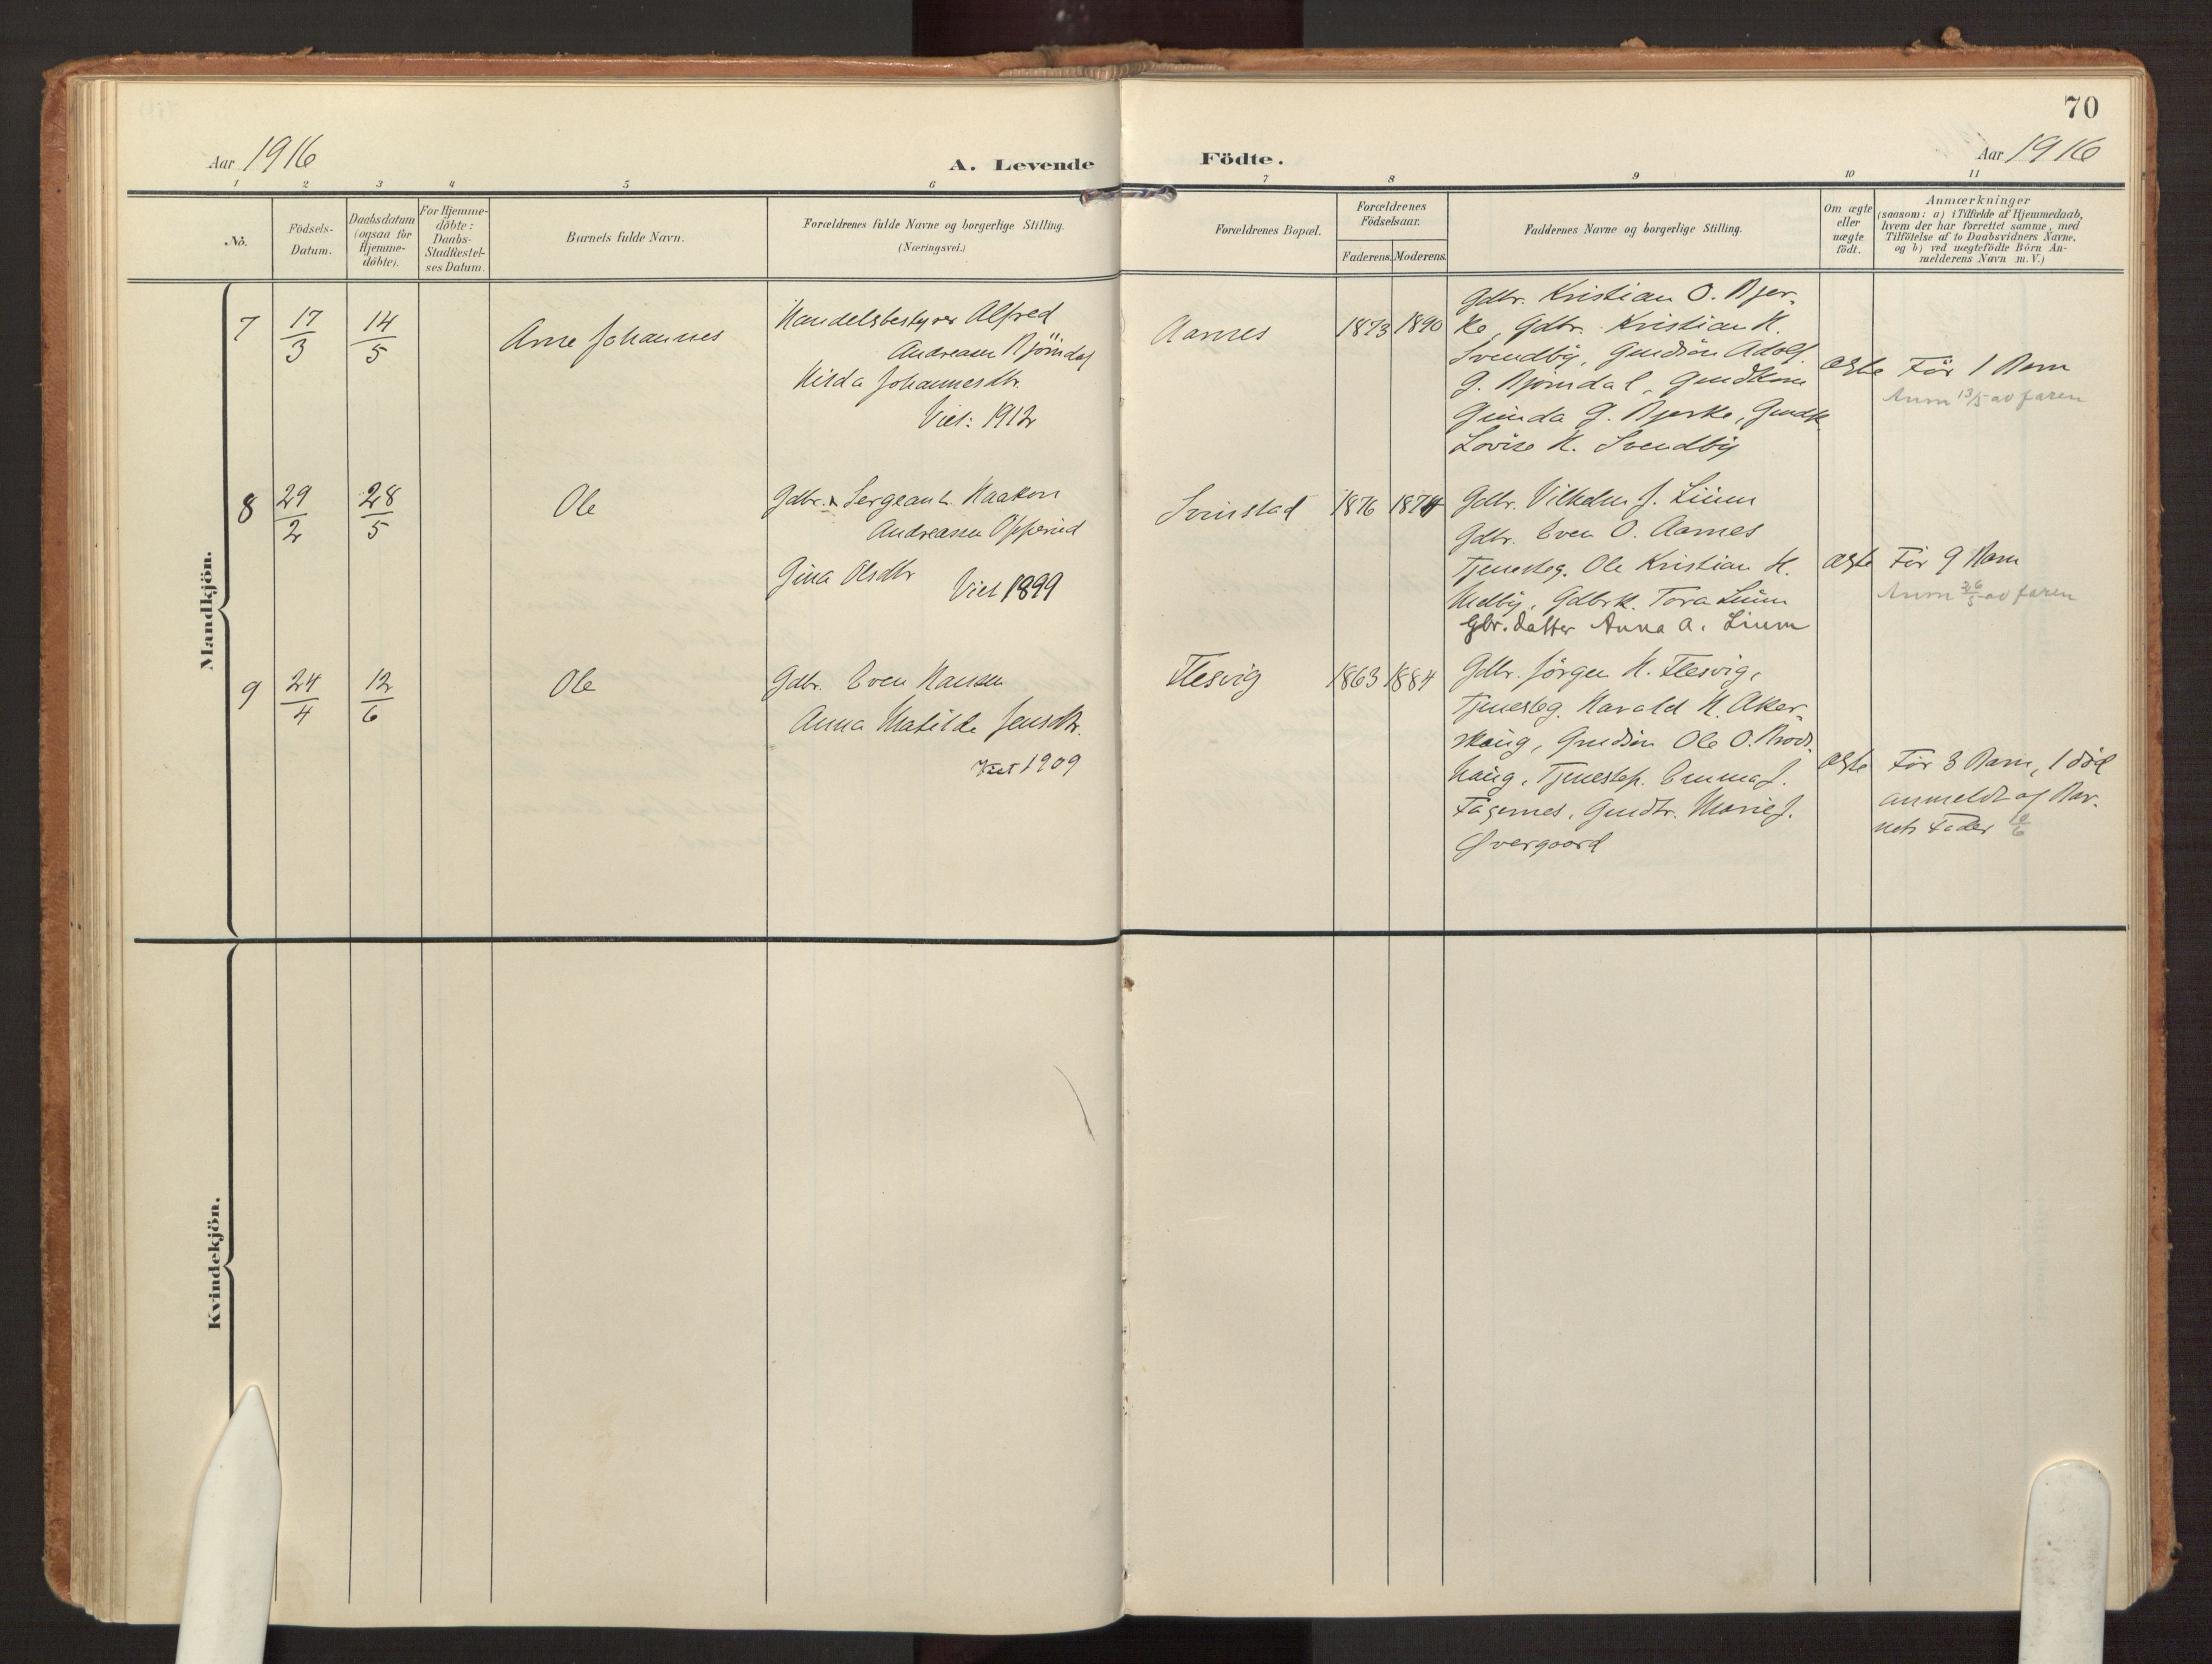 70
Aar 1916
A. Levende Födte.
Aar 1916
1 2 3 4 5 6 7 8 9 10 11
No.
Födsels-
Datum.
Daabsdatum
(ogsaa for
Hjemme-
döbte).
For Hjemme-
döbte:
Daabs-
Stadfæstel-
ses Datum.
Barnets fulde Navn.
Forældrenes fulde Navne og borgerlige Stilling.
(Næringsvei.)
Forældrenes Bopæl.
Forældrenes
Födselsaar.
Faderens. Moderens.
Faddernes Navne og borgerlige Stilling.
Om ægte
eller
uægte
födt.
Anmærkninger
(saasom: a) i Tilfælde af Hjemmedaab,
hvem der har forrettet samme, med
Tilföielse af to Daabsvidners Navne,
og b) ved uægtefödte Börn An-
melderens Navn m. V.)
Mandkjön.
7
17/3
14/5
Arne Johannes
Handelsbestyrer Alfred
Andreasen Bjørndal
Hilda Johannesdtr.
Viet: 1912
Aarnes
1873 1890
Gdbr. Kristian O. Bjer-
ke, Gdbr. Kristian K.
Svendby, Gmdsön Adolf
G. Bjørndal, Gmdkone
Gunda G. Bjerke, Gmdk.
Lovise K. Svendby
ægte
För 1 Barn
Anm 13/5 av faren
8
29/2
28/5
Ole
Gdbr. & Sergeant Haakon
Andreasen Opperud
Gina Olsdtr
Viet 1899
Svinstad
1876 1874
Gdbr. Vilhelm J. Lium
Gdbr. Even O. Aarnes
Tjenesteg. Ole Kristian H.
Melby, Gdbrk. Tora Lium
Gbr. datter Anna A. Lium
ægte
För 9 Barn
Anm 26/5 av faren
9
24/4
12/6
Ole
Gdbr. Even Hansen
Anna Matilde Jensdtr.
Viet 1909
Flesvig
1863 1884
Gdbr. Jörgen H. Flesvig,
Tjenesteg. Harald H. Aker-
haug, Gmdsön Ole O. Brods-
haug, Tjenestep. Emma J.
Fagernes, Gmdtr. Marie J.
Øvergaard
ægte
För 3 Barn, 1 död
anmeldt af Bar-
nets Fader 10/6
Kvindekjön.